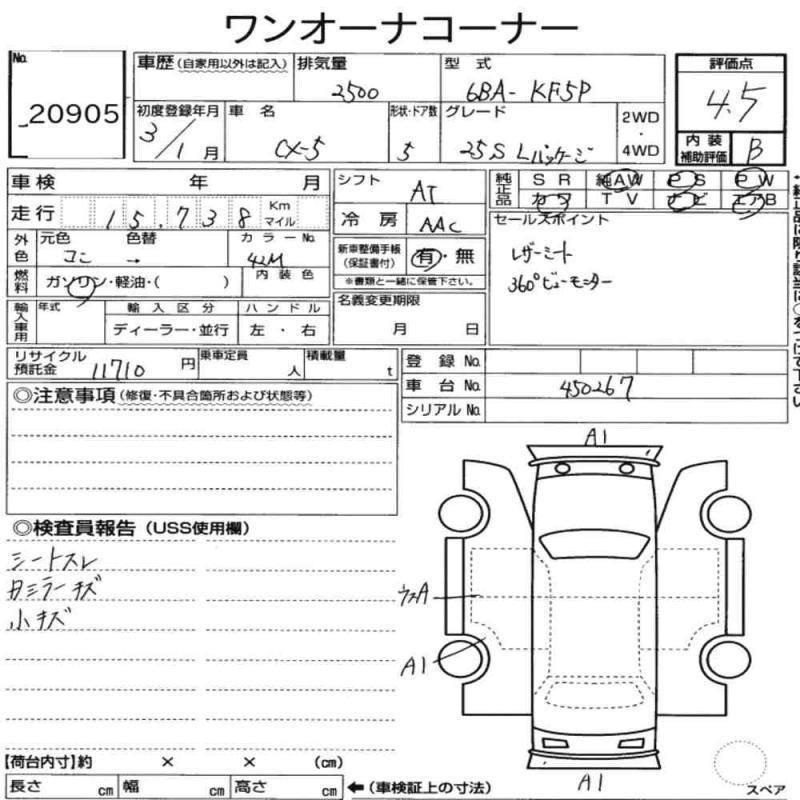 ワンオーナコーナー
No. 20905
車歴 (自家用以外は記入)
排気量 2500
型 式 6BA- KF5P
評価点 4.5
初度登録年月 3/1月
車 名 CX-5
形状・ドア数 5
グレード 25S Lパッケージ
2WD・4WD
内装補助評価 B
車検 年 月
シフト AT
純正品 SR 純AW PS PW
カワ TV ナビ エアB
走行 15,738 Km マイル
冷房 AAC
セールスポイント
レザーシート
360°ビューモニター
外色 元色 コン 色替 → カラーNo. 42M
新車整備手帳(保証書付) 有・無
※書類と一緒に保管下さい。
燃料 ガソリン・軽油・( ) 内装色
名義変更期限
月 日
輸入車用 年式 輸入区分 ハンドル
ディーラー・並行 左・右
リサイクル預託金 11710 円
乗車定員 人
積載量 t
登録No.
車台No. 450267
シリアルNo.
◎注意事項 (修復・不具合箇所および状態等)
A1
◎検査員報告 (USS使用欄)
シートスレ
タミラーキズ
小キズ
A
A1
A1
【荷台内寸】約 × × (cm)
長さ cm 幅 cm 高さ cm ←(車検証上の寸法)
スペア